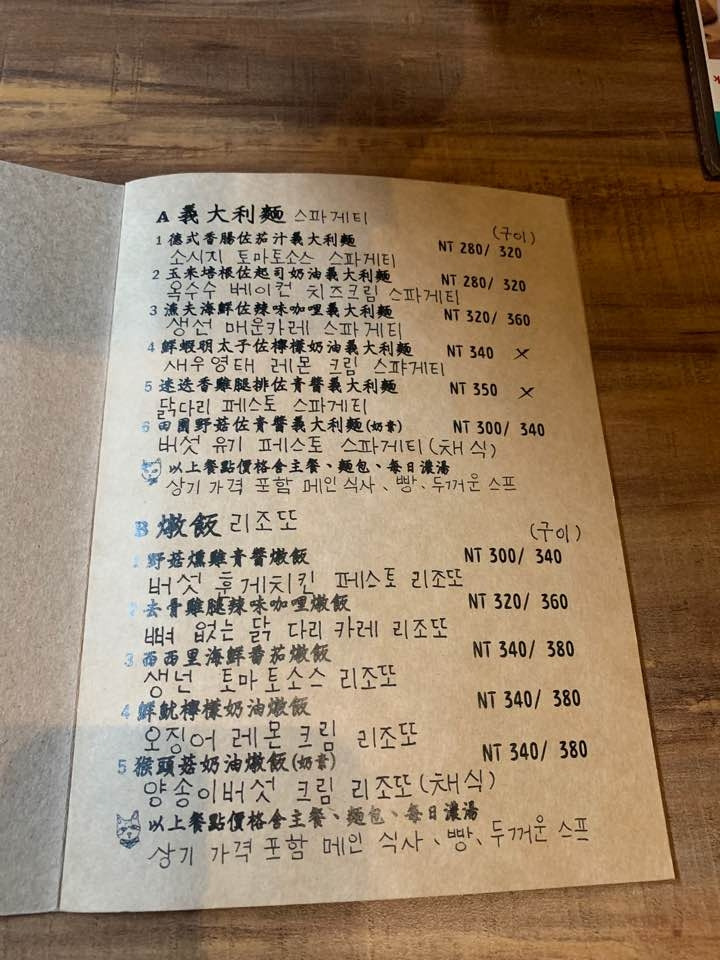 A 義大利麵 스파게티
(구이)
1 德式香腸佐茄汁義大利麵 NT 280/ 320
소시지 토마토소스 스파게티
2 玉米培根佐起司奶油義大利麵 NT 280/ 320
옥수수 베이컨 치즈크림 스파게티
3 漁夫海鮮佐辣味咖哩義大利麵 NT 320/ 360
생선 매운카레 스파게티
4 鮮蝦明太子佐檸檬奶油義大利麵 NT 340 ×
새우영태 레몬 크림 스파게티
5 迷迭香雞腿排佐青醬義大利麵 NT 350 ×
닭다리 페스토 스파게티
6 田園野菇佐青醬義大利麵(奶素) NT 300/ 340
버섯 유기 페스토 스파게티(채식)
以上餐點價格含主餐、麵包、每日濃湯
상기 가격 포함 메인 식사、빵、두꺼운 스프
B 燉飯 리조또
(구이)
1 野菇燻雞青醬燉飯 NT 300/ 340
버섯 훈게치킨 페스토 리조또
2 去骨雞腿辣味咖哩燉飯 NT 320/ 360
뼈 없는 닭 다리 카레 리조또
3 西西里海鮮番茄燉飯 NT 340/ 380
생넌 토마토소스 리조또
4 鮮魷檸檬奶油燉飯 NT 340/ 380
오징어 레몬 크림 리조또
5 猴頭菇奶油燉飯(奶素) NT 340/ 380
양송이버섯 크림 리조또(채식)
以上餐點價格含主餐、麵包、每日濃湯
상기 가격 포함 메인 식사、빵、두꺼운 스프